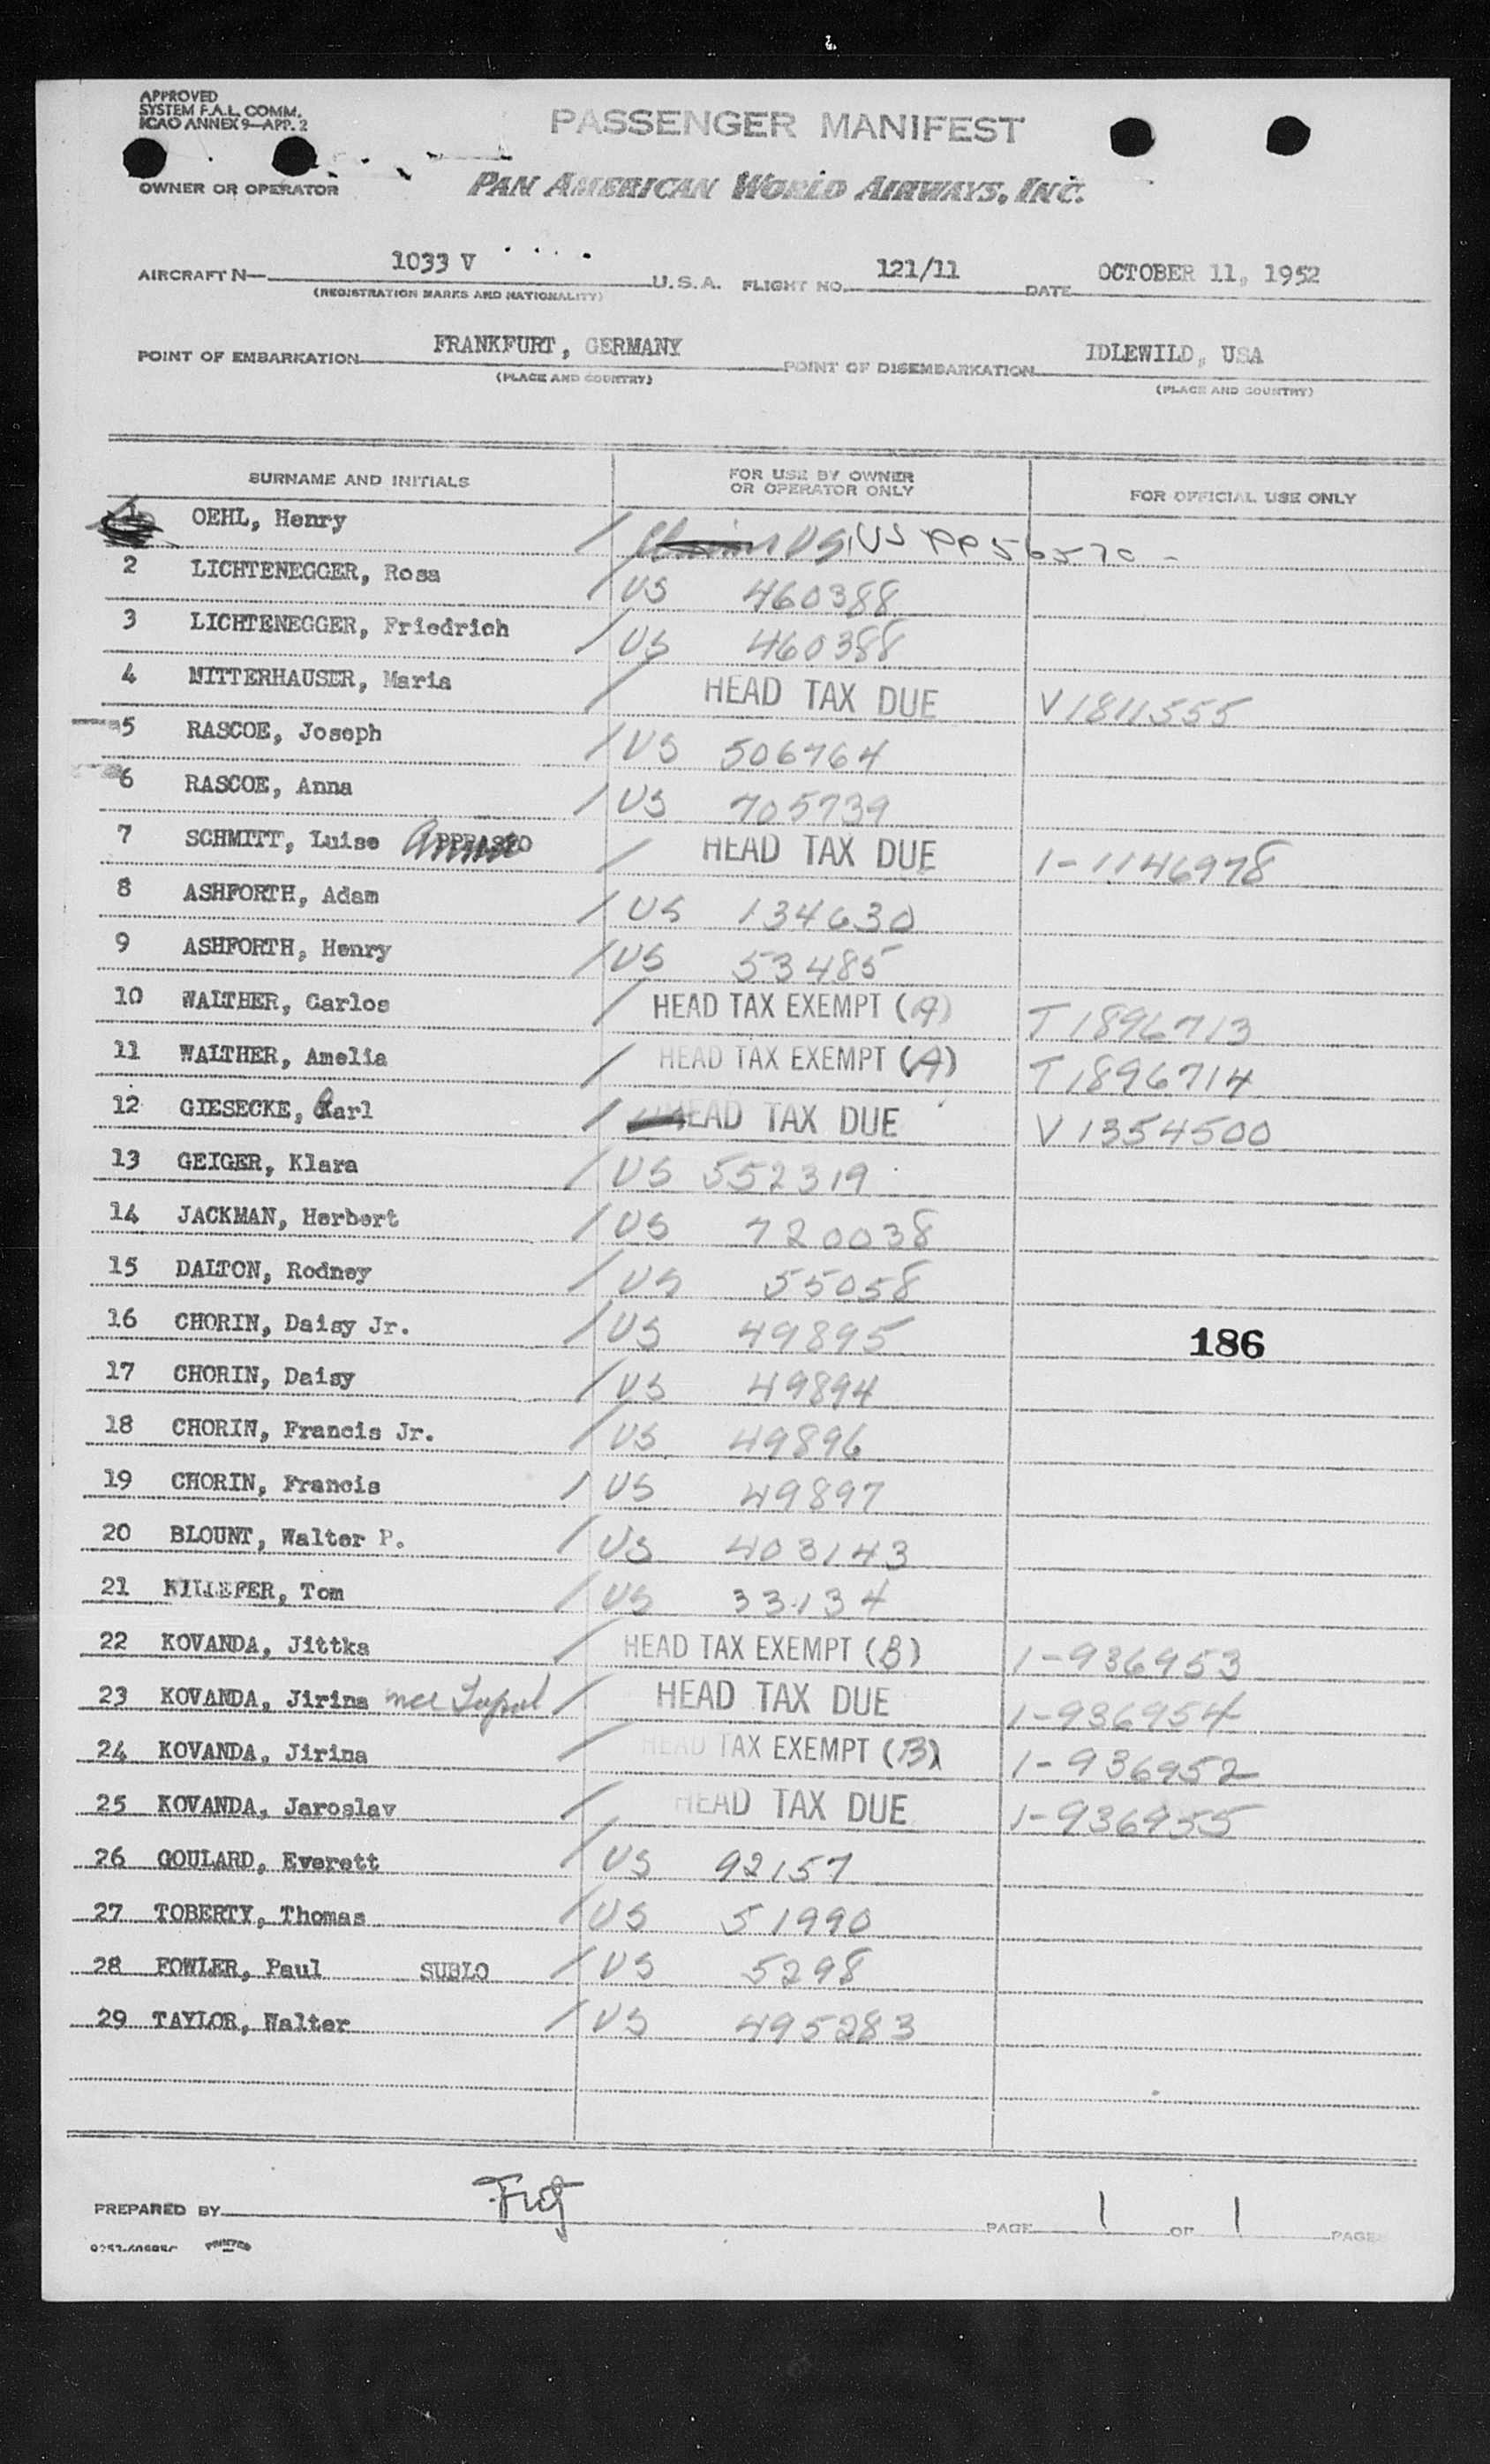 APPROVED
SYSTEM F.A.L. COMM.
ICAO ANNEX 9—APP. 2
PASSENGER MANIFEST
OWNER OR OPERATOR PAN AMERICAN WORLD AIRWAYS, INC.
AIRCRAFT N— 1033 V U.S.A. FLIGHT NO. 121/11 DATE OCTOBER 11, 1952
(REGISTRATION MARKS AND NATIONALITY)
POINT OF EMBARKATION FRANKFURT, GERMANY POINT OF DISEMBARKATION IDLEWILD, USA
(PLACE AND COUNTRY) (PLACE AND COUNTRY)
SURNAME AND INITIALS FOR USE BY OWNER OR OPERATOR ONLY FOR OFFICIAL USE ONLY
OEHL, Henry / US, US PP 56570 -
2 LICHTENEGGER, Rosa / US 460388
3 LICHTENEGGER, Friedrich / US 460388
4 MITTERHAUSER, Maria / HEAD TAX DUE V1811555
5 RASCOE, Joseph / US 506764
6 RASCOE, Anna / US 705739
7 SCHMITT, Luise / HEAD TAX DUE 1-1146978
8 ASHFORTH, Adam / US 134630
9 ASHFORTH, Henry / US 53485
10 WALTHER, Carlos / HEAD TAX EXEMPT (A) T1896713
11 WALTHER, Amelia / HEAD TAX EXEMPT (A) T1896714
12 GIESECKE, Carl / HEAD TAX DUE V1354500
13 GEIGER, Klara / US 552319
14 JACKMAN, Herbert / US 720038
15 DALTON, Rodney / US 55058
16 CHORIN, Daisy Jr. / US 49895 186
17 CHORIN, Daisy / US 49894
18 CHORIN, Francis Jr. / US 49896
19 CHORIN, Francis / US 49897
20 BLOUNT, Walter P. / US 403143
21 KILLEFER, Tom / US 33134
22 KOVANDA, Jittka / HEAD TAX EXEMPT (B) 1-936953
23 KOVANDA, Jirina nee / HEAD TAX DUE 1-936954
24 KOVANDA, Jirina / HEAD TAX EXEMPT (B) 1-936952
25 KOVANDA, Jaroslav / HEAD TAX DUE 1-936955
26 GOULARD, Everett / US 92157
27 TOBERTY, Thomas / US 51990
28 FOWLER, Paul SUBLO / US 5298
29 TAYLOR, Walter / US 495283
PREPARED BY PAGE 1 OF 1 PAGE
PRINTED